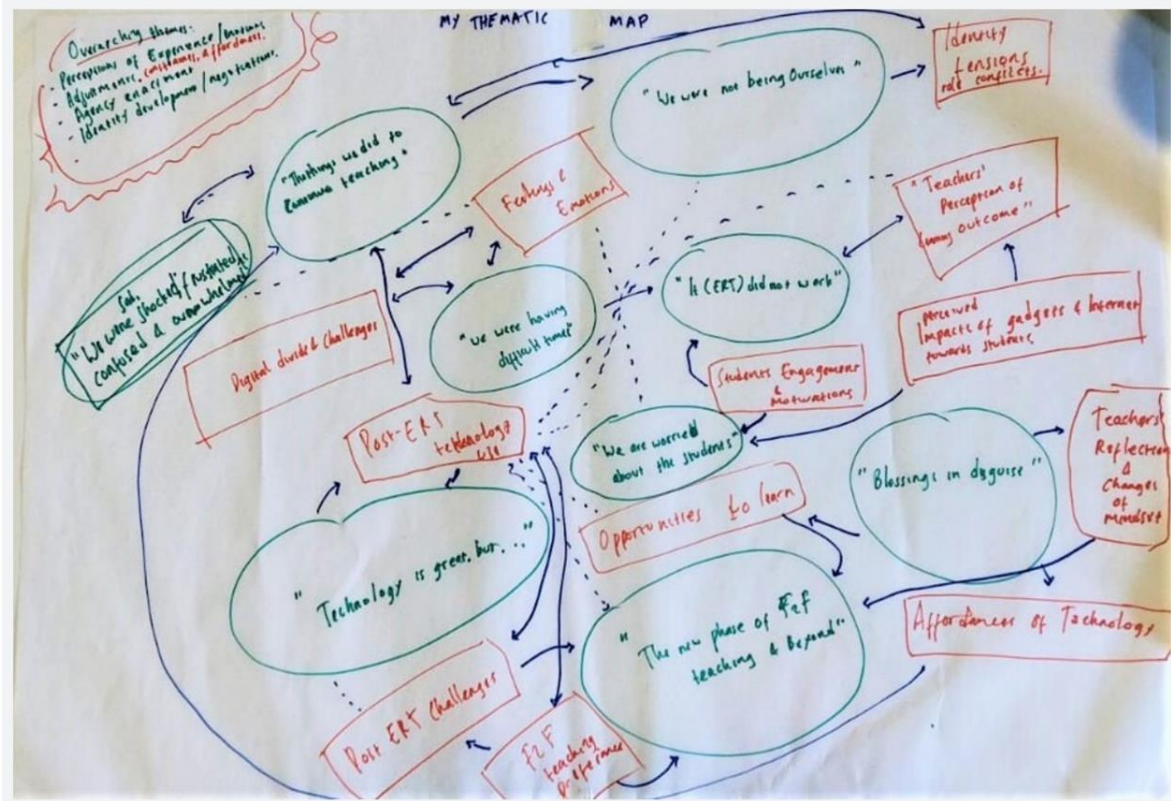 MY THEMATIC MAP
Overarching themes.
- Perceptions of Experience/emotions
- Adjustments, constraines, affordances.
- Agency enactment
- Identity development/negotiations.
"We were not being Ourselves"
Identity
tensions
role conflicts.
"Thithings we did to
continue teaching"
Feelings &
Emotions
"Teachers'
Perception of
outcome"
sad,
"We were shocked, frustrated,
confused & overwhelmed"
"It (ERT) did not work"
"We were having
difficult times"
perceived
Impacts of gadgets & Internet
towards students.
Digital divide & challenges
Students Engagement
&
Motivations
Post-ERT
technology
use
"We are worried
about the students"
"Blessings in disguise"
Teachers'
Reflection
&
Changes
of
mindset
Opportunities to learn
"Technology is great, but..."
"The new phase of F2f
teaching & Beyond"
Affordances of Technology
Post ERT Challenges
F2F
teaching
preferance